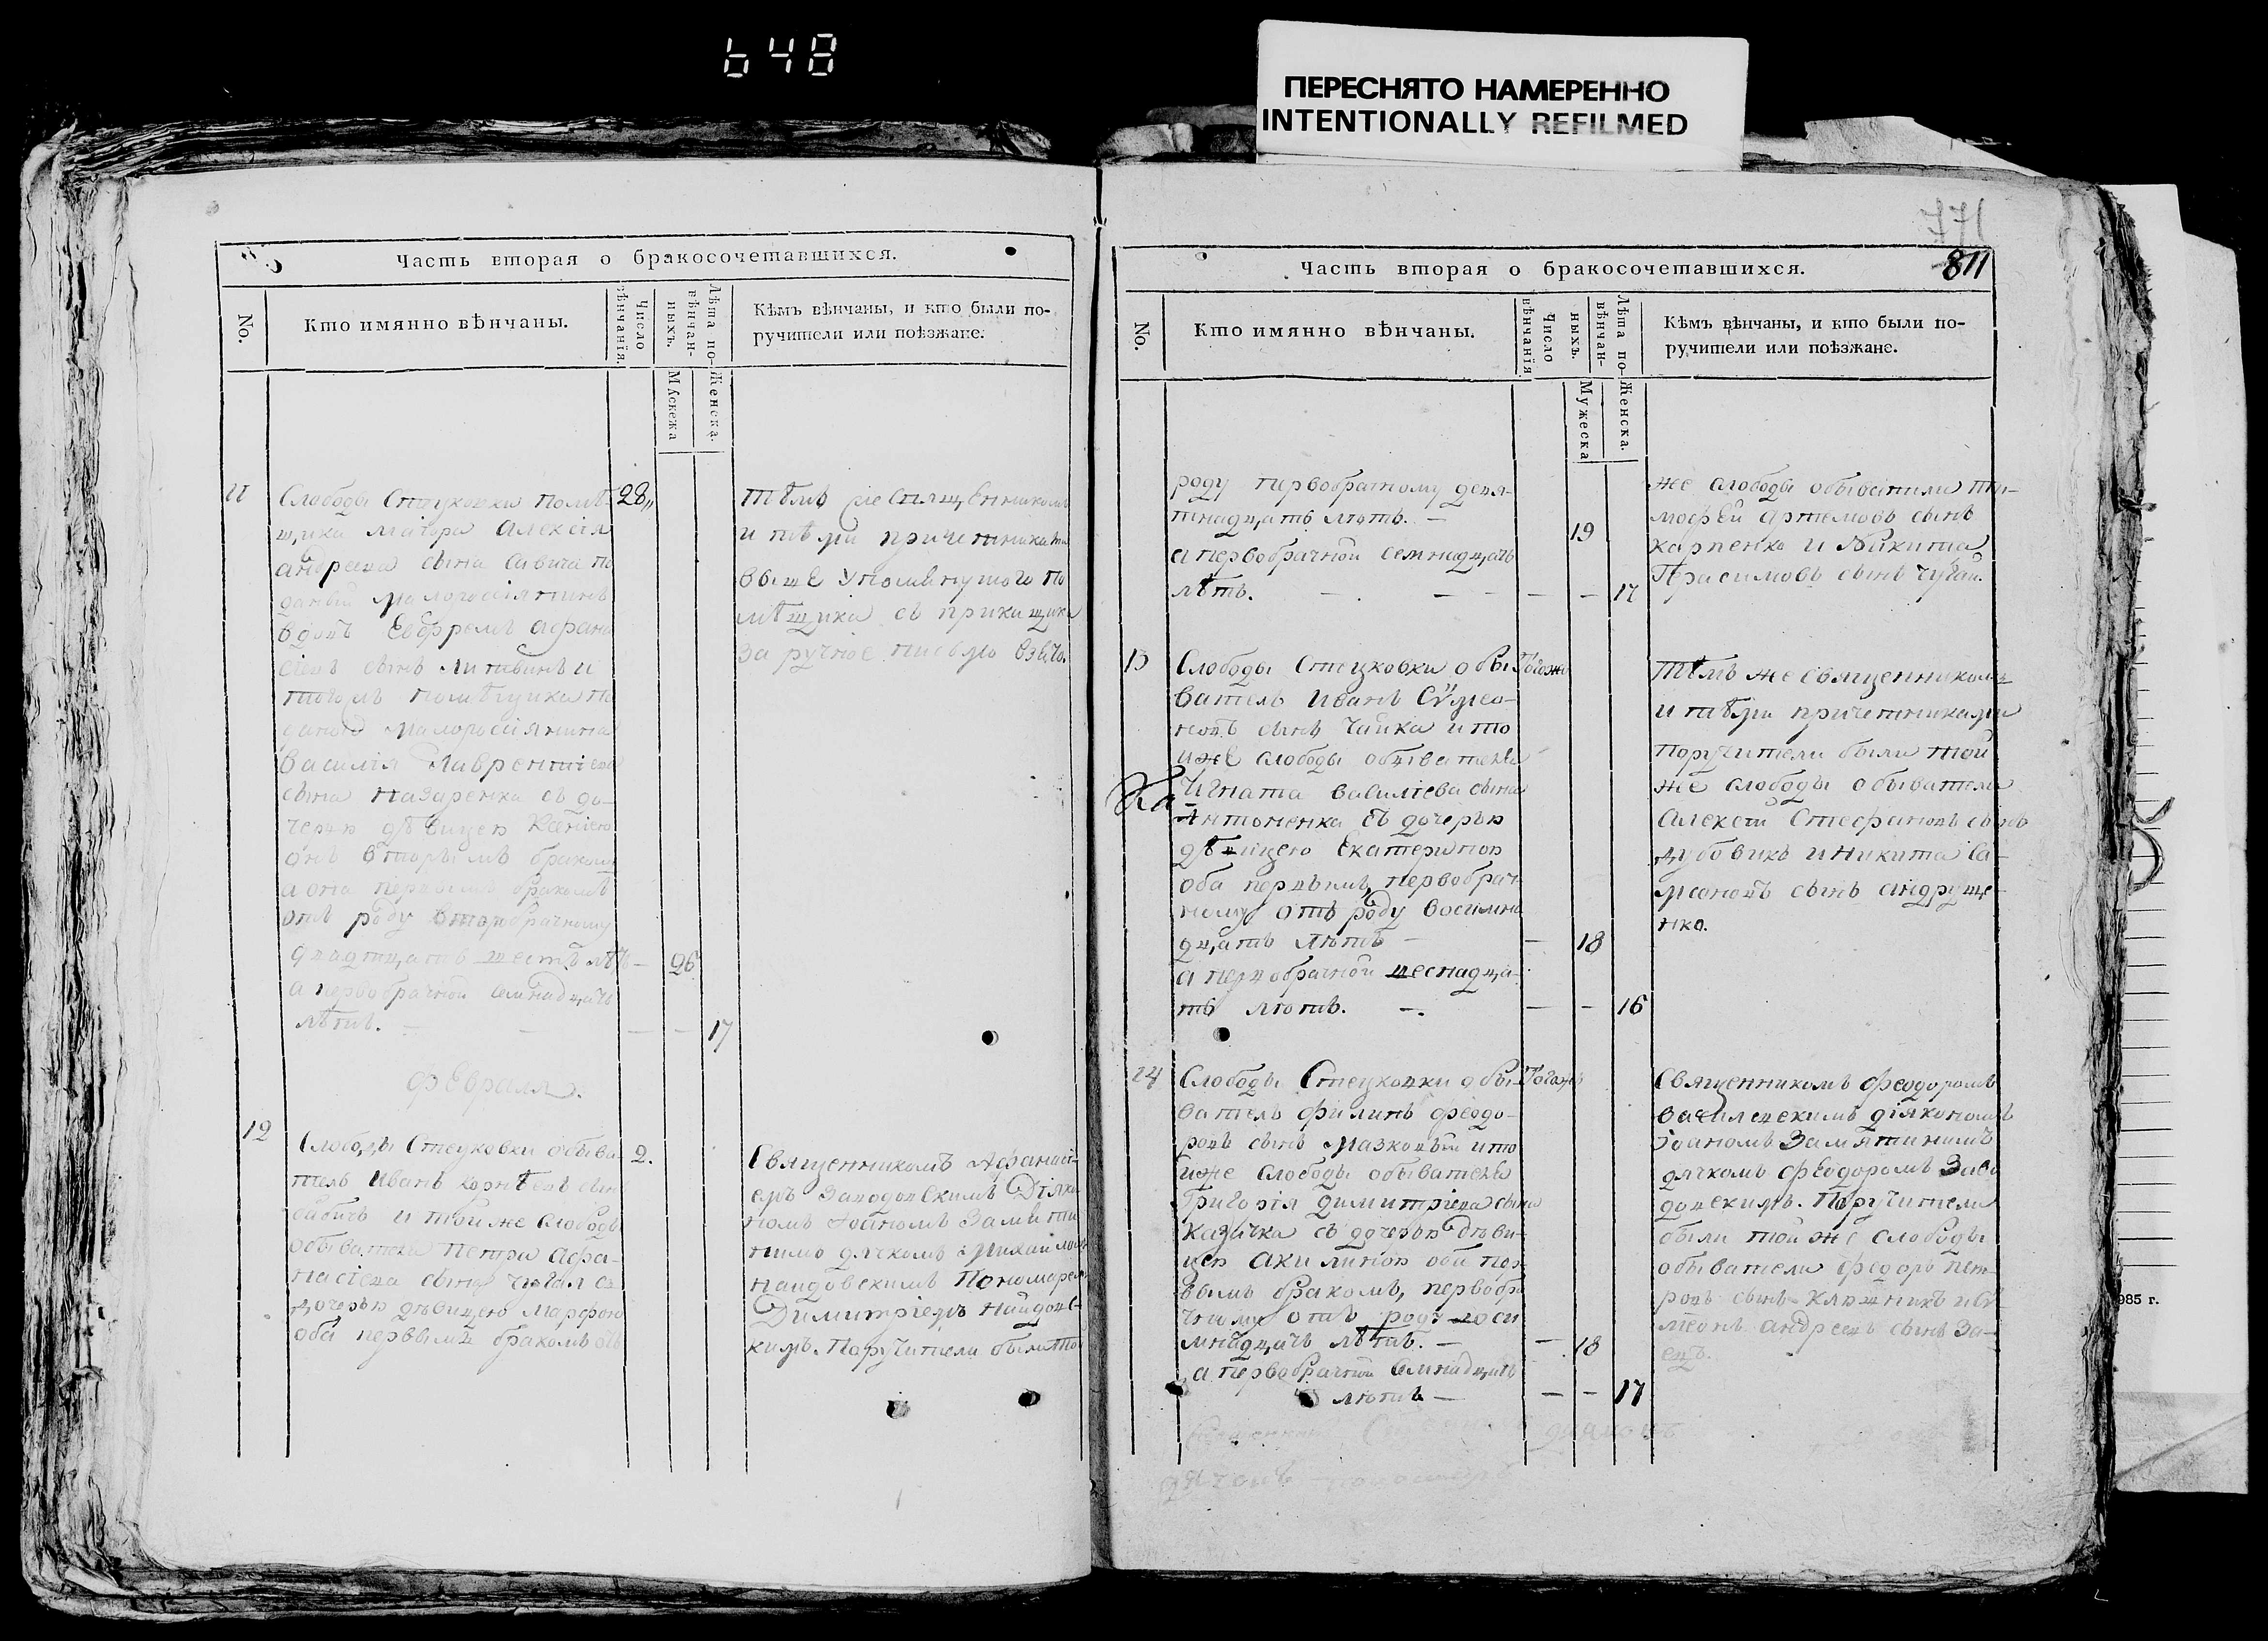 648
ПЕРЕСНЯТО НАМЕРЕННО
INTENTIONALLY REFILMED
Часть вторая о бракосочетавшихся.
No.
Кто имянно вѣнчаны.
Число вѣнчанія.
Лѣта по-вѣнчан-ныхъ.
Мужеска
Женска.
Кѣмъ вѣнчаны, и кто были по-
ручители или поѣзжане.
11
Слободы Стецковки помѣ-
щика маіора Алексія
Андреева сына Савича по
даный малоросіянинъ
вдовъ Евфремъ Афана
сіевъ сынъ Литвинъ и
тогожъ помѣщика по
даного малоросіянина
Василія Лаврентіева
сына Назаренка съ до-
черью дѣвицею Ксеніею
онъ вторымъ бракомъ
а она первымъ бракомъ
отъ роду второбрачному
двадцать шесть лѣтъ
а первобрачной семнадцать
лѣтъ.
28
26
17
тѣмъ же Священникомъ
и тѣми причетниками
выше упомянутого по
мѣщика съ прикащика
за ручное писмо взято.
Февраля.
12
Слободы Стецковки обыва-
тель Иванъ Корнѣевъ сынъ
Бабичъ и той же слободы
обывателя Петра Афа-
насіева сына Чугая съ
дочерью дѣвицею Марфою
оба первымъ бракомъ отъ
2.
Священникомъ Афанасі-
емъ Заводовскимъ Діяко
номъ Іоаномъ Замяти
нимъ дячкомъ Михаиломъ
Найдовскимъ Пономаремъ
Димитріемъ Найдовс-
кимъ. Поручители были той
771
811
Часть вторая о бракосочетавшихся.
No.
Кто имянно вѣнчаны.
Число вѣнчанія
Лѣта по-вѣнчан-ныхъ.
Мужеска
Женска.
Кѣмъ вѣнчаны, и кто были по-
ручители или поѣзжане.
роду первобрачному девя-
тнадцать лѣтъ.
а первобрачной семнадцать
лѣтъ.
19
17
же слободы обыватили Ти-
мофей Артемовъ сынъ
Карпенко и Никита
сынъ Чугай.
13
Слободы Стецковки обы
ватель Иванъ Сѵмео-
новъ сынъ Чайка и то
йже слободы обывателя
Игната Василіева сына
Антоненка съ дочерью
дѣвицею Екатериною
оба первымъ, первобрач-
ному отъ роду восимна
дцать лѣтъ
а первобрачной шеснадца-
ть лѣтъ.
Тогожъ
18
16
Тѣмъ же священникомъ
и тѣми причетниками
поручители были той
же слободы обыватели
Алексѣй Стефановъ сынъ
Дубовикъ и Никита Си-
меоновъ сынъ Андруще-
нко.
14
Слободы Стецковки обы-
ватель Филипъ Феодо-
ровъ сынъ Мазковый и то
йже слободы обывателя
Григорія Димитріева сына
Казачка съ дочерью дѣви-
цею Акилиною оба пер-
вымъ бракомъ, первобра
чному отъ роду воси
мнадцать лѣтъ.
а первобрачной семнадцать
лѣтъ
Тогожъ
18
17
Священникомъ Феодоромъ
Василевскимъ діякономъ
Іоаномъ Замятинимъ
дячкомъ Феодоромъ Заво
довскимъ. Поручители
были той же слободы
обыватели Федоръ Пет-
ровъ сынъ Ключникъ и Си
меонъ Андреевъ сынъ За-
ецъ.
985 г.